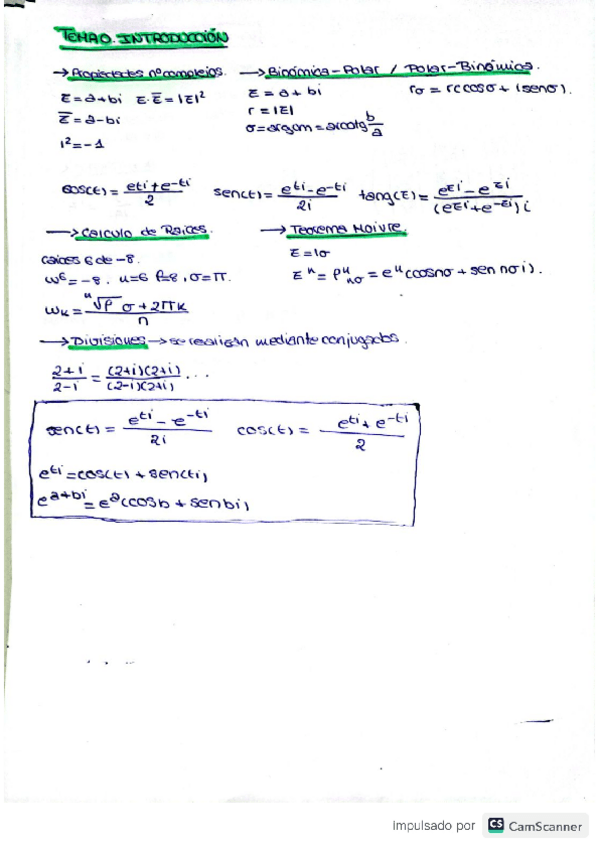 TEMA 0. INTRODUCCIÓN
→ Propiedades nº complejos.
z = a + bi  z·z̄ = |z|²
z̄ = a - bi
i² = -1
→ Binómica - Polar / Polar - Binómica.
z = a + bi
r = |z|
σ = argum = arcotg b/a
rσ = r(cosσ + isenσ).
cos(t) = (e^ti + e^-ti)/2  sen(t) = (e^ti - e^-ti)/2i  tang(z) = (e^zi - e^zi)/((e^zi + e^-zi)i)
→ Calculo de Raíces.
raíces 6 de -8.
w⁶ = -8. n=6 ρ=8, σ=π.
wₖ = ⁿ√ρ (σ + 2πk)/n
→ Teorema Moivre.
z = 1σ
zⁿ = ρⁿ nσ = eⁿ(cosnσ + sen nσ i).
→ Divisiones → se realizan mediante conjugados.
(2+i)/(2-i) = (2+i)(2+i)/(2-i)(2+i) ...
sen(t) = (e^ti - e^-ti)/2i  cos(t) = (e^ti + e^-ti)/2
e^ti = cos(t) + sen(ti)
e^a+bi = e^a(cosb + senbi)
Impulsado por CS CamScanner